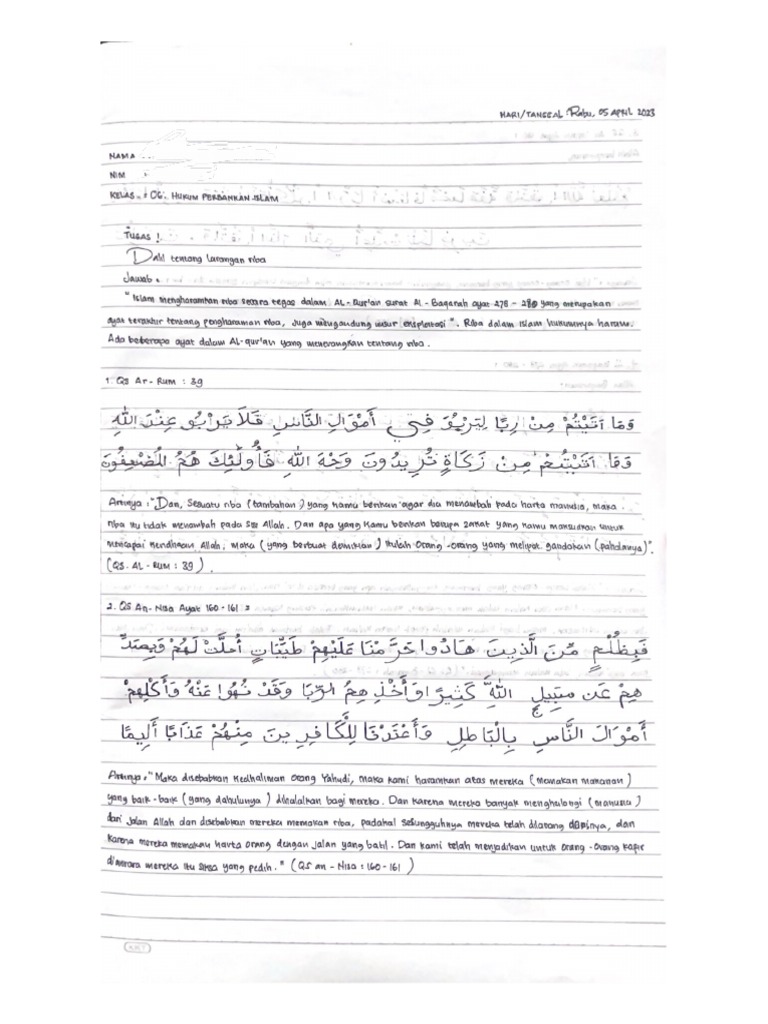 HARI/TANGGAL Rabu, 05 APRIL 2023
NAMA
NIM :
KELAS : 06. HUKUM PERBANKAN ISLAM
TUGAS !
Dalil tentang larangan riba
Jawab :
"Islam mengharamkan riba secara tegas dalam AL-Qur'an surat Al-Baqarah ayat 278 - 280 yang merupakan
ayat terakhir tentang pengharaman riba, juga mengandung unsur eksploitasi". Riba dalam Islam hukumnya haram.
Ada beberapa ayat dalam AL-qur'an yang menerangkan tentang riba.
1. QS Ar-Rum : 39
وَمَا اَتَيْتُمْ مِنْ رِبًا لِيَرْبُوَ فِي أَمْوَالِ النَّاسِ فَلَا يَرْبُو عِنْدَ اللهِ
وَمَا اَتَيْتُمْ مِنْ زَكَاةٍ تُرِيدُونَ وَجْهَ اللهِ فَأُولَٰئِكَ هُمُ الْمُضْعِفُونَ
Artinya : "Dan, Sesuatu riba (tambahan) yang kamu berikan agar dia menambah pada harta manusia, maka
riba itu tidak menambah pada sisi Allah. Dan apa yang Kamu berikan berupa zakat yang kamu maksudkan untuk
mencapai keridhaan Allah, maka (yang berbuat demikian) itulah orang-orang yang melipat gandakan (pahalanya)".
(QS. AL-RUM : 39).
2. QS An-Nisa Ayat 160-161 :
فَبِظُلْمٍ مِّنَ الَّذِينَ هَادُوا حَرَّمْنَا عَلَيْهِمْ طَيِّبَاتٍ أُحِلَّتْ لَهُمْ وَبِصَدِّ
هِمْ عَن سَبِيلِ اللَّهِ كَثِيرًا وَأَخْذِهِمُ الرِّبَا وَقَدْ نُهُوا عَنْهُ وَأَكْلِهِمْ
أَمْوَالَ النَّاسِ بِالْبَاطِلِ وَأَعْتَدْنَا لِلْكَافِرِينَ مِنْهُمْ عَذَابًا أَلِيمًا
Artinya : "Maka disebabkan kedhaliman orang Yahudi, maka kami haramkan atas mereka (memakan makanan)
yang baik-baik (yang dahulunya) dihalalkan bagi mereka. Dan karena mereka banyak menghalangi (manusia)
dari jalan Allah dan disebabkan mereka memakan riba, padahal sesungguhnya mereka telah dilarang darinya, dan
karena mereka memakan harta orang dengan jalan yang batil. Dan kami telah menjadikan untuk orang-orang kafir
diantara mereka itu siksa yang pedih." (QS an-Nisa : 160-161)